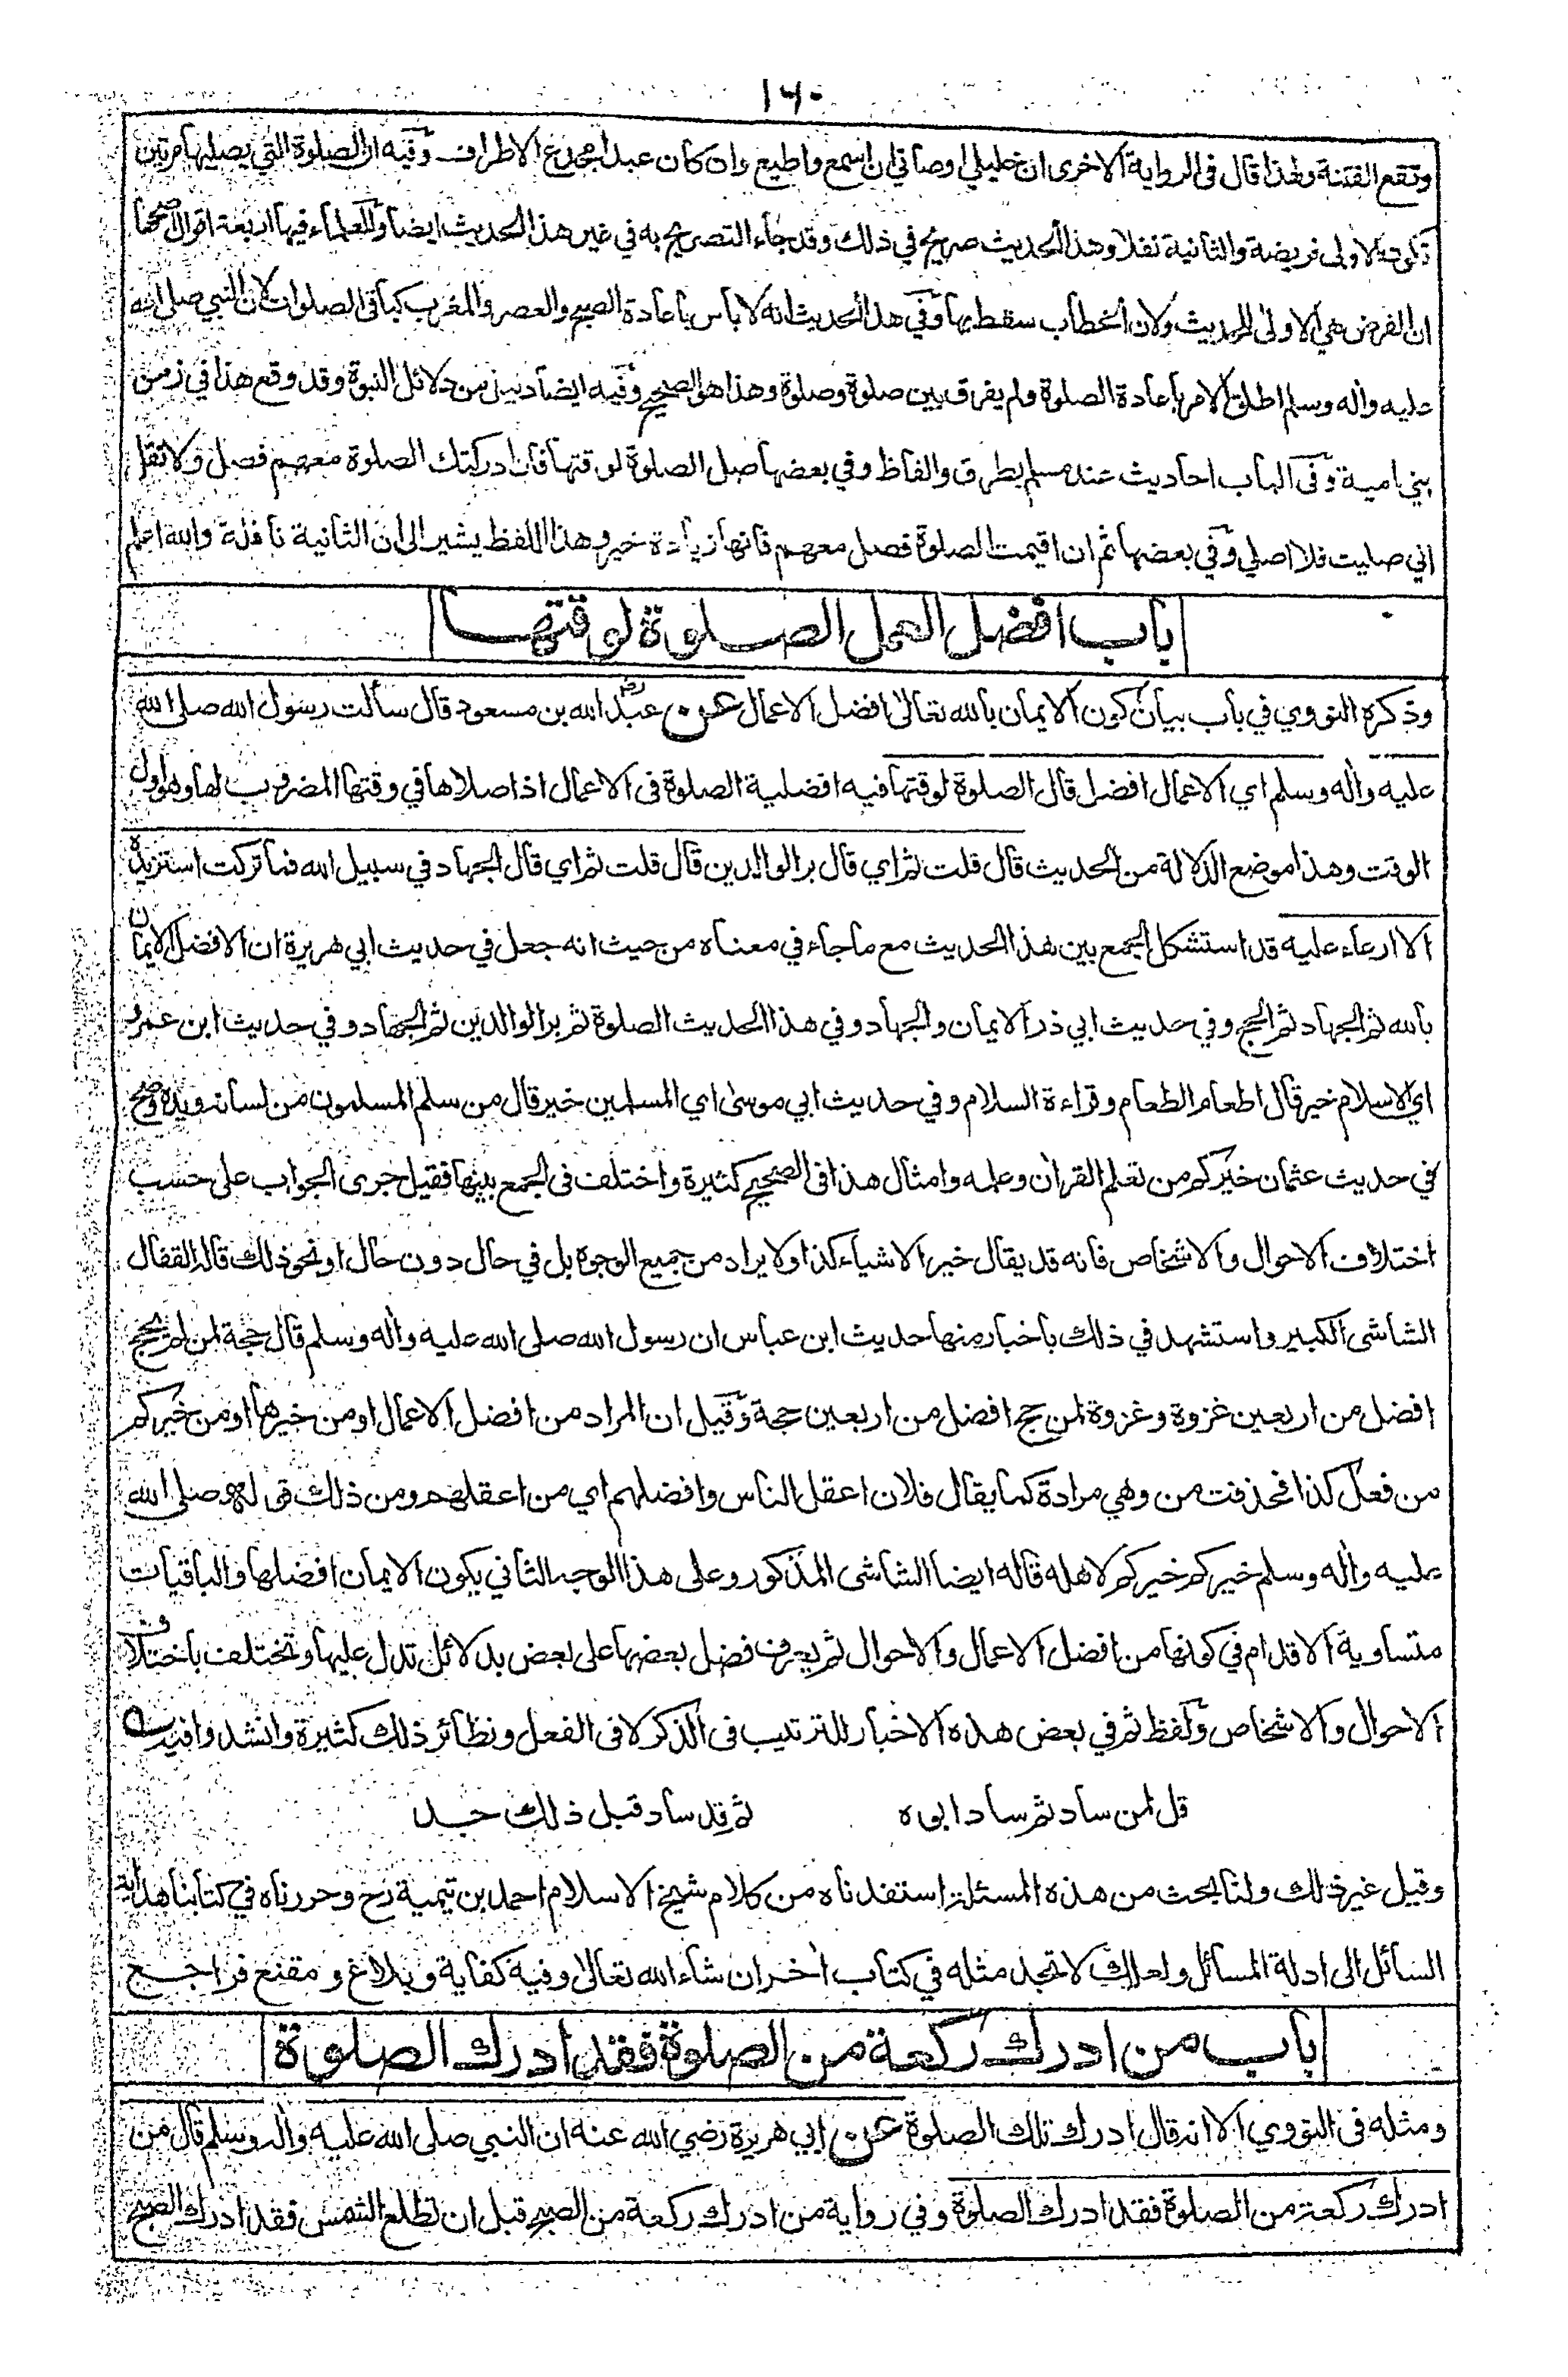 ١٦٠
وتقع الفتنة ولهذا قال فى الرواية الاخرى ان خليلي اوصاني ان اسمع واطيع وان كان عبدا مجدع الاطراف وفيه ان الصلوة التي يصليها مرتين
تكون الاولى فريضة والثانية نفلا وهذا الحديث صريح في ذلك وقد جاء التصريح به في غير هذا الحديث ايضا وللعلماء فيها اربعة اقوال صحها
ان الفرض هي الاولى للحديث ولان الخطاب سقط بها وفي هذا الحديث انه لا باس باعادة الصبح والعصر والمغرب كباقى الصلوات لان النبي صلى الله
عليه واله وسلم اطلق الامر باعادة الصلوة ولم يفرق بين صلوة وصلوة وهذا هو الصحيح وفيه ايضا دليل من دلائل النبوة وقد وقع هذا في زمن
بني امية وفى الباب احاديث عند مسلم بطرق والفاظ وفي بعضها صل الصلوة لوقتها فان ادركتك الصلوة معهم فصل ولا تقل
اني صليت فلا اصلي وفي بعضها ثم ان اقيمت الصلوة فصل معهم فانها زيادة خير وهذا اللفظ يشير الى ان الثانية نافلة والله اعلم
باب افضل العمل الصلوة لوقتها
وذكره النووي في باب بيان كون الايمان بالله تعالى افضل الاعمال عن عبد الله بن مسعود رض قال سألت رسول الله صلى الله
عليه واله وسلم اي الاعمال افضل قال الصلوة لوقتها فيه افضلية الصلوة فى الاعمال اذا صلاها في وقتها المضروب لها وهو اول
الوقت وهذا موضع الدلالة من الحديث قال قلت ثم اي قال بر الوالدين قال قلت ثم اي قال الجهاد في سبيل الله فما تركت استزيده
الا ارعاء عليه قد استشكل الجمع بين هذا الحديث مع ما جاء في معناه من حيث انه جعل في حديث ابي هريرة ان الافضل الايمان
بالله ثم الجهاد ثم الحج وفي حديث ابي ذر الايمان والجهاد وفي هذا الحديث الصلوة ثم بر الوالدين ثم الجهاد وفي حديث ابن عمرو
اي الاسلام خير قال اطعام الطعام وقراءة السلام وفي حديث ابي موسى اي المسلمين خير قال من سلم المسلمون من لسانه ويده وصح
في حديث عثمان خيركم من تعلم القران وعلمه وامثال هذا فى الصحيح كثيرة واختلف فى الجمع بينها فقيل جرى الجواب على حسب
اختلاف الاحوال والاشخاص فانه قد يقال خير الاشياء كذا ولا يراد من جميع الوجوه بل في حال دون حال او نحو ذلك قاله القفال
الشاشى الكبير واستشهد في ذلك باخبار منها حديث ابن عباس ان رسول الله صلى الله عليه واله وسلم قال حجة لمن لم يحج
افضل من اربعين غزوة وغزوة لمن حج افضل من اربعين حجة وقيل ان المراد من افضل الاعمال او من خيرها او من خيركم
من فعل كذا فحذفت من وهي مرادة كما يقال فلان اعقل الناس وافضلهم اي من اعقلهم ومن ذلك قوله صلى الله
عليه واله وسلم خيركم خيركم لاهله قاله ايضا الشاشى المذكور وعلى هذا الوجه الثاني يكون الايمان افضلها والباقيات
متساوية الاقدام في كونها من افضل الاعمال والاحوال ثم يعرف فضل بعضها على بعض بدلائل تدل عليها وتختلف باختلاف
الاحوال والاشخاص ولفظ ثم في بعض هذه الاخبار للترتيب فى الذكر لا فى الفعل ونظائر ذلك كثيرة وانشدوا فيه
قل لمن ساد ثم ساد ابوه ثم قد ساد قبل ذلك جده
وقيل غير ذلك ولنا بحث من هذه المسئلة استفدناه من كلام شيخ الاسلام احمد بن تيمية رح وحررناه في كتابنا هداية
السائل الى ادلة المسائل ولعلك لا تجد مثله في كتاب اخر ان شاء الله تعالى وفيه كفاية وبلاغ ومقنع فراجع
باب من ادرك ركعة من الصلوة فقد ادرك الصلوة
ومثله فى النووي الا انه قال ادرك تلك الصلوة عن ابي هريرة رضي الله عنه ان النبي صلى الله عليه واله وسلم قال من
ادرك ركعة من الصلوة فقد ادرك الصلوة وفي رواية من ادرك ركعة من الصبح قبل ان تطلع الشمس فقد ادرك الصبح